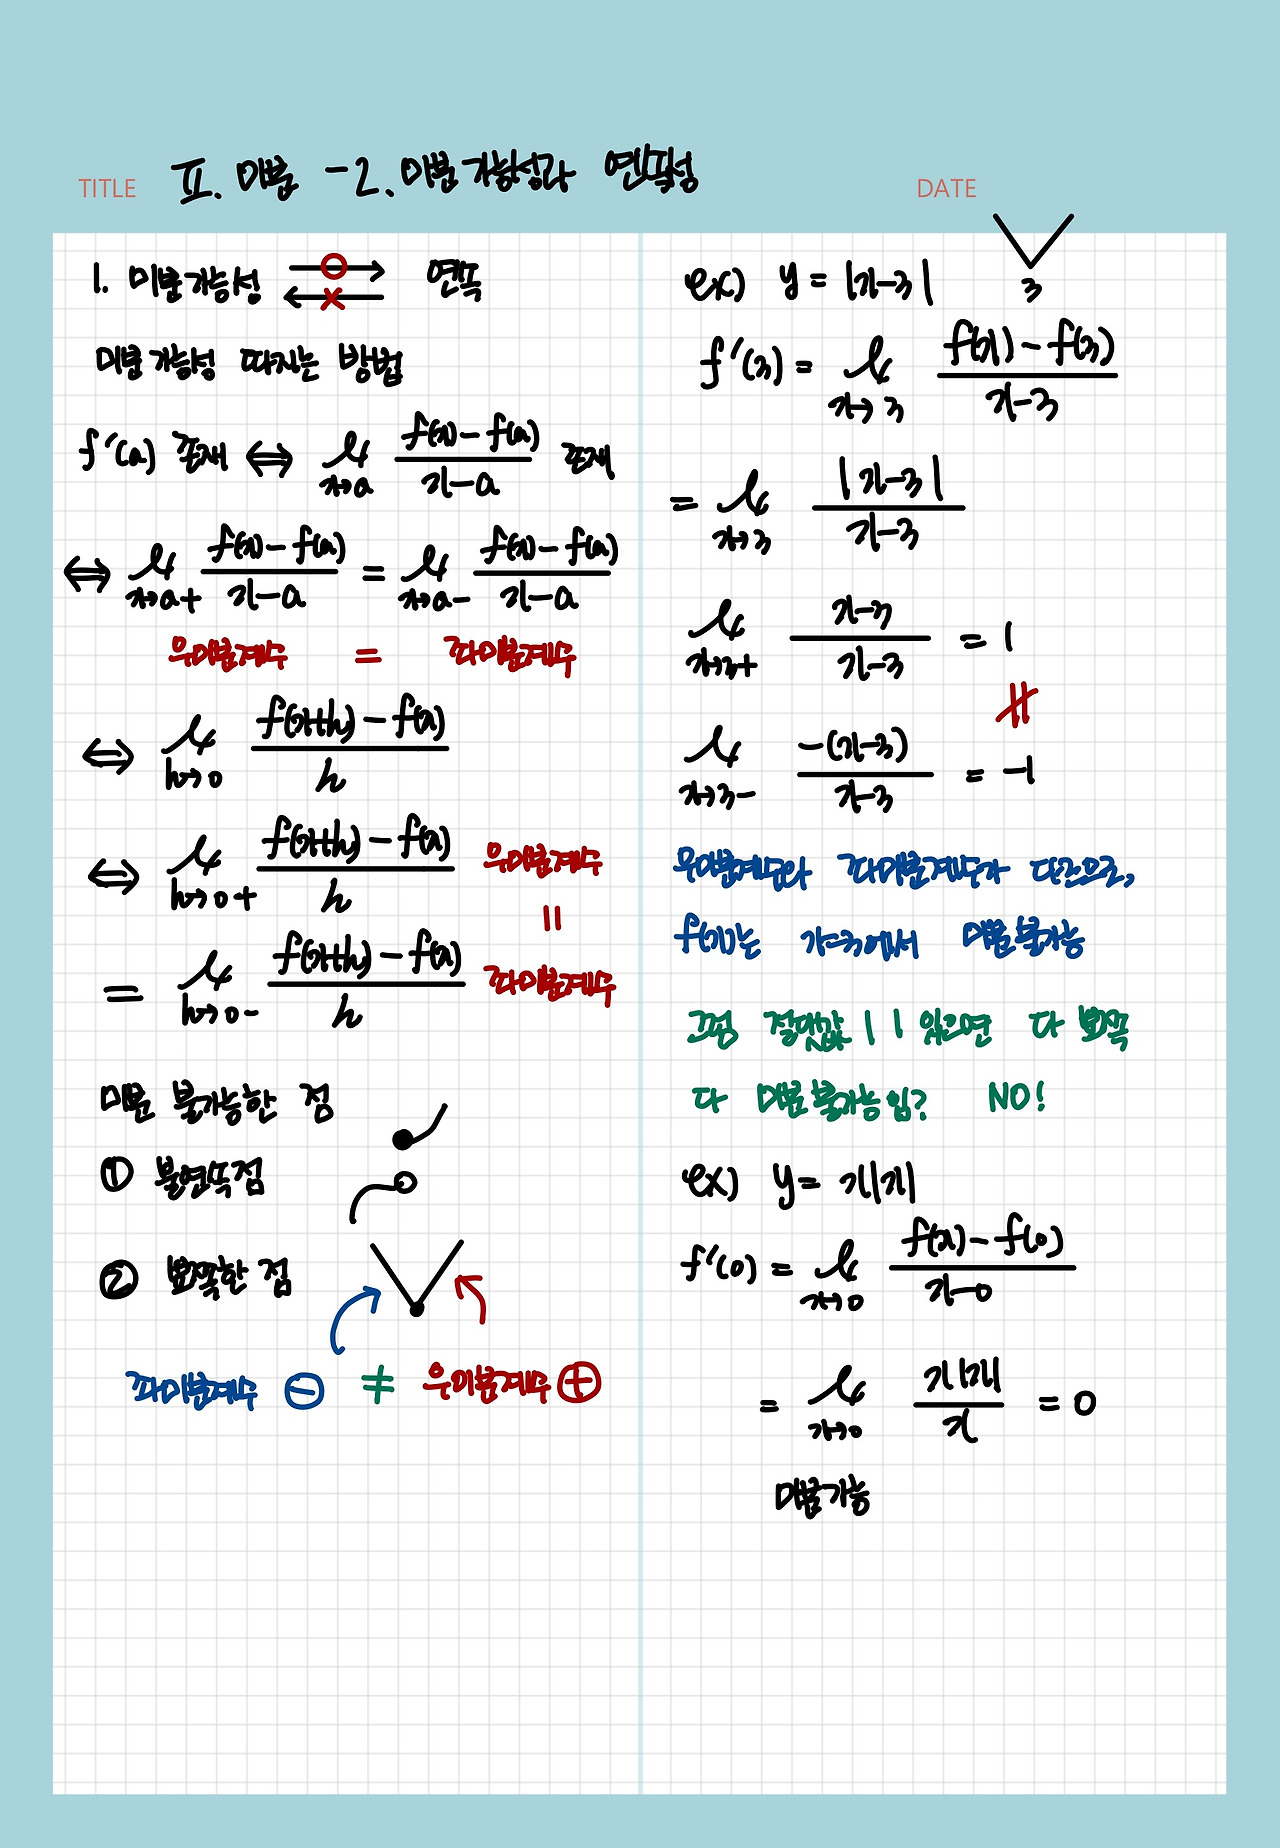 TITLE II. 미분 -2. 미분가능성과 연속성 DATE
1. 미분가능성 ⇄ 연속
○
×
미분가능성 따지는 방법
f'(a) 존재 ⇔ lim x→a f(x)-f(a) / x-a 존재
⇔ lim x→a+ f(x)-f(a) / x-a = lim x→a- f(x)-f(a) / x-a
우미분계수 = 좌미분계수
⇔ lim h→0 f(x+h)-f(x) / h
⇔ lim h→0+ f(x+h)-f(x) / h 우미분계수
=
= lim h→0- f(x+h)-f(x) / h 좌미분계수
미분 불가능한 점
① 불연속점
② 뾰족한 점
좌미분계수 ⊖ ≠ 우미분계수 ⊕
ex) y = |x-3|
3
f'(3) = lim x→3 f(x)-f(3) / x-3
= lim x→3 |x-3| / x-3
lim x→3+ x-3 / x-3 = 1
≠
lim x→3- -(x-3) / x-3 = -1
우미분계수와 좌미분계수가 다르므로,
f(x)는 x=3에서 미분불가능
그럼 절댓값 | | 있으면 다 뾰족
다 미분불가능임? NO!
ex) y = x|x|
f'(0) = lim x→0 f(x)-f(0) / x-0
= lim x→0 x|x| / x = 0
미분가능